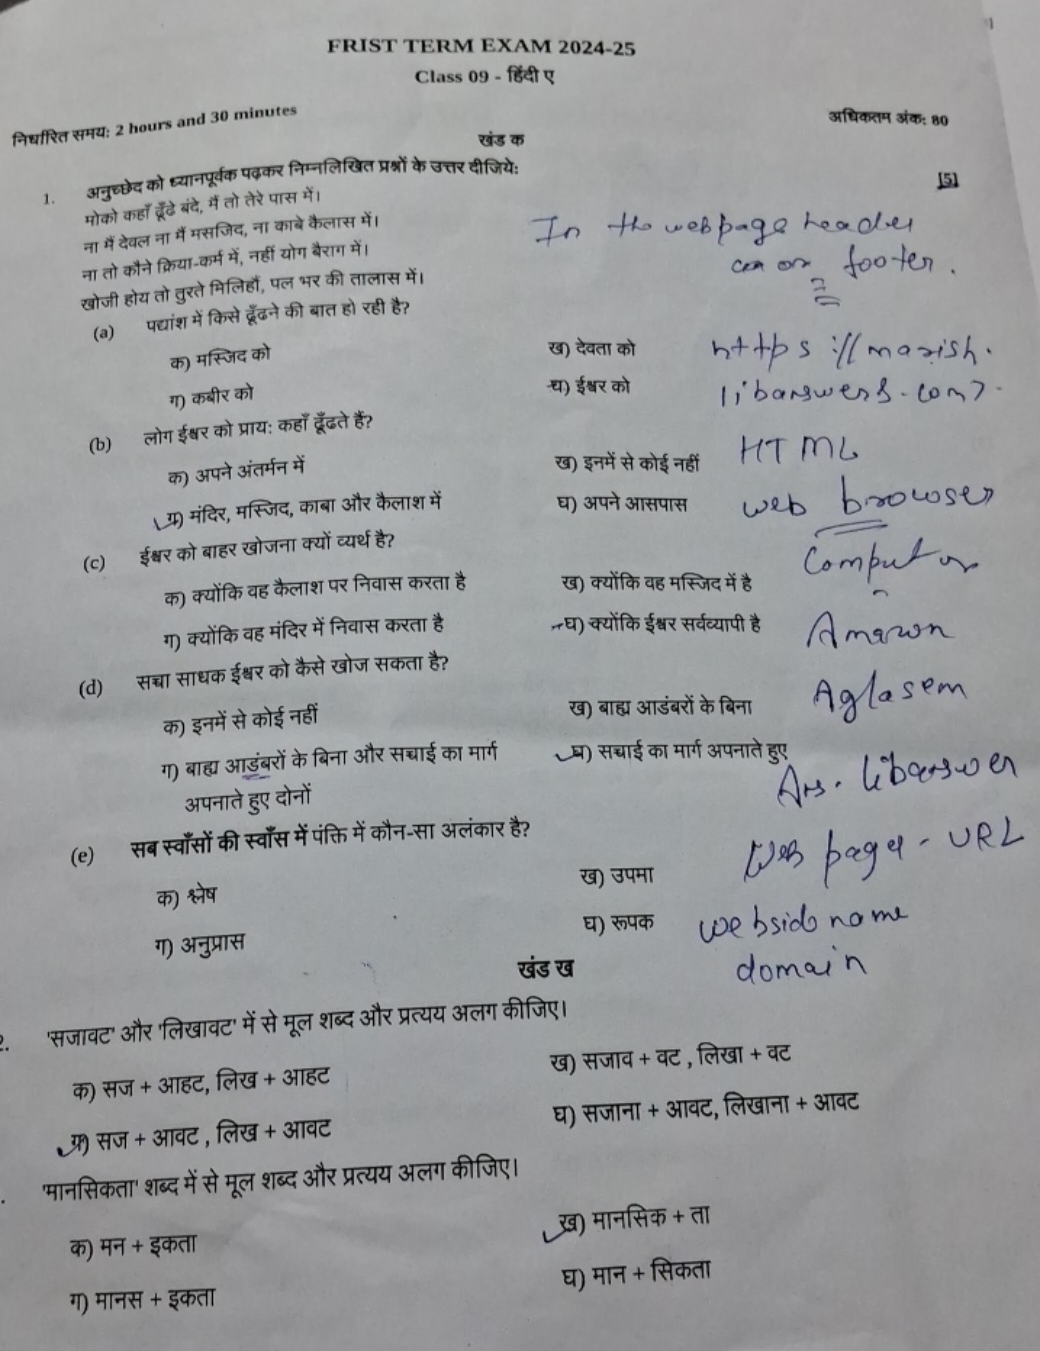 FRIST TERM EXAM 2024-25
Class 09 - हिंदी ए
निर्धारित समय: 2 hours and 30 minutes
अधिकतम अंक: 80
खंड क
1. अनुच्छेद को ध्यानपूर्वक पढ़कर निम्नलिखित प्रश्नों के उत्तर दीजिये: [5]
मोको कहाँ ढूँढे बंदे, मैं तो तेरे पास में।
ना मैं देवल ना मैं मसजिद, ना काबे कैलास में।
ना तो कौने क्रिया-कर्म में, नहीं योग बैराग में।
खोजी होय तो तुरते मिलिहौं, पल भर की तालास में।
In the webpage header
or footer.
(a) पद्यांश में किसे ढूँढने की बात हो रही है?
क) मस्जिद को ख) देवता को
ग) कबीर को घ) ईश्वर को
https://marish.
libanswers.com
(b) लोग ईश्वर को प्राय: कहाँ ढूँढते हैं?
क) अपने अंतर्मन में ख) इनमें से कोई नहीं
ग) मंदिर, मस्जिद, काबा और कैलाश में घ) अपने आसपास
HTML
web browser
(c) ईश्वर को बाहर खोजना क्यों व्यर्थ है?
क) क्योंकि वह कैलाश पर निवास करता है ख) क्योंकि वह मस्जिद में है
ग) क्योंकि वह मंदिर में निवास करता है घ) क्योंकि ईश्वर सर्वव्यापी है
Amazon
(d) सच्चा साधक ईश्वर को कैसे खोज सकता है?
क) इनमें से कोई नहीं ख) बाह्य आडंबरों के बिना
ग) बाह्य आडंबरों के बिना और सच्चाई का मार्ग घ) सच्चाई का मार्ग अपनाते हुए
अपनाते हुए दोनों
Aglasem
Ans. libanswer
(e) सब स्वाँसों की स्वाँस में पंक्ति में कौन-सा अलंकार है?
क) श्लेष ख) उपमा
ग) अनुप्रास घ) रूपक
URL
name
domain
खंड ख
'सजावट' और 'लिखावट' में से मूल शब्द और प्रत्यय अलग कीजिए।
क) सज + आहट, लिख + आहट ख) सजाव + वट , लिखा + वट
ग) सज + आवट , लिख + आवट घ) सजाना + आवट, लिखाना + आवट
'मानसिकता' शब्द में से मूल शब्द और प्रत्यय अलग कीजिए।
क) मन + इकता ख) मानसिक + ता
ग) मानस + इकता घ) मान + सिकता